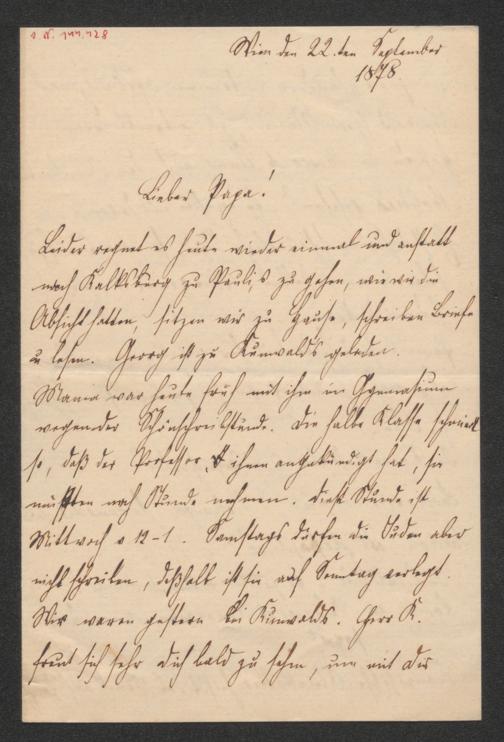 Wien den 22.ten September
1878.
Lieber Papa!
Leider regnet es heute wieder einmal und anstatt
nach Kalksburg zu Pauli's zu gehen, wie wir die
Absicht hatten, sitzen wir zu Hause, schreiben Briefe
u lesen. Georg ist zu Kunwalds geladen.
Mama war heute früh mit ihm im Gymnasium
wegen der Schönschreibstunde. Die halbe Klasse schmiert
so, daß der Professor ihnen angekündigt hat, sie
müßten noch Stunde nehmen. Diese Stunde ist
Mittwoch v 12-1. Samstags dürfen die Juden aber
nicht schreiben, deßhalb ist sie auf Sonntag verlegt.
Wir waren gestern bei Kunwalds. Herr K.
freut sich sehr Dich bald zu sehen, um mit Dir